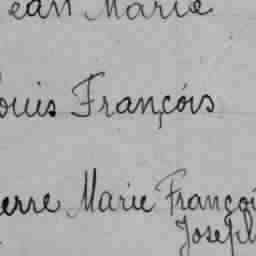 ean Marie
ouis François
erre Marie Françoi
Joseph